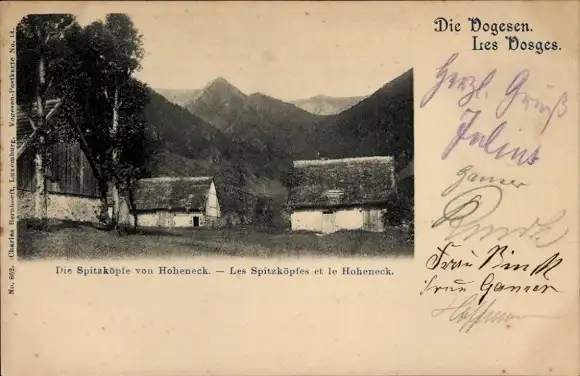 Die Vogesen.
Les Vosges.
Herzl. Gruß
Julius
Ganser
Frau Rink
Frau Ganser
Hoffmann
Die Spitzköpfe von Hoheneck. — Les Spitzköpfes et le Hoheneck.
No. 862. (Charles Bernhoeft, Luxemburg. Vogesen-Postkarte No. 14.